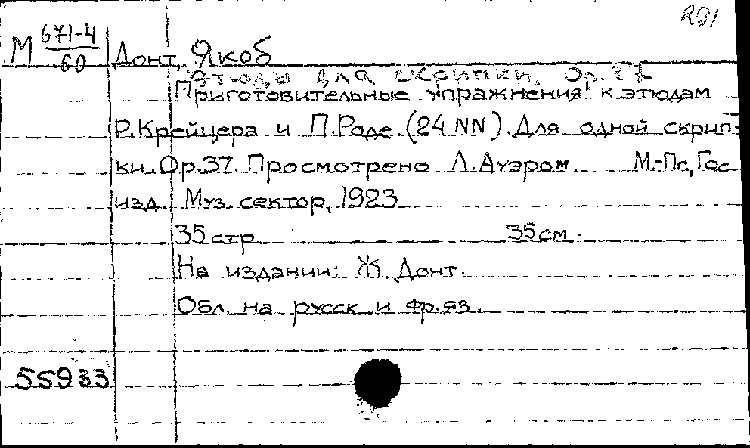 R91
М 671-4/60
Донт, Якоб
Этюды для скрипки. Op. 37
Приготовительные упражнения к этюдам
Р. Крейцера и П. Роде. (24 NN). Для одной скрип-
ки. Op. 37. Просмотрено Л. Ауэром. М.-Пг, Гос.
изд. Муз. сектор, 1923
35 стр. 35 см.
На издании: Ж. Донт.
Обл. на русск. и фр. яз.
55933